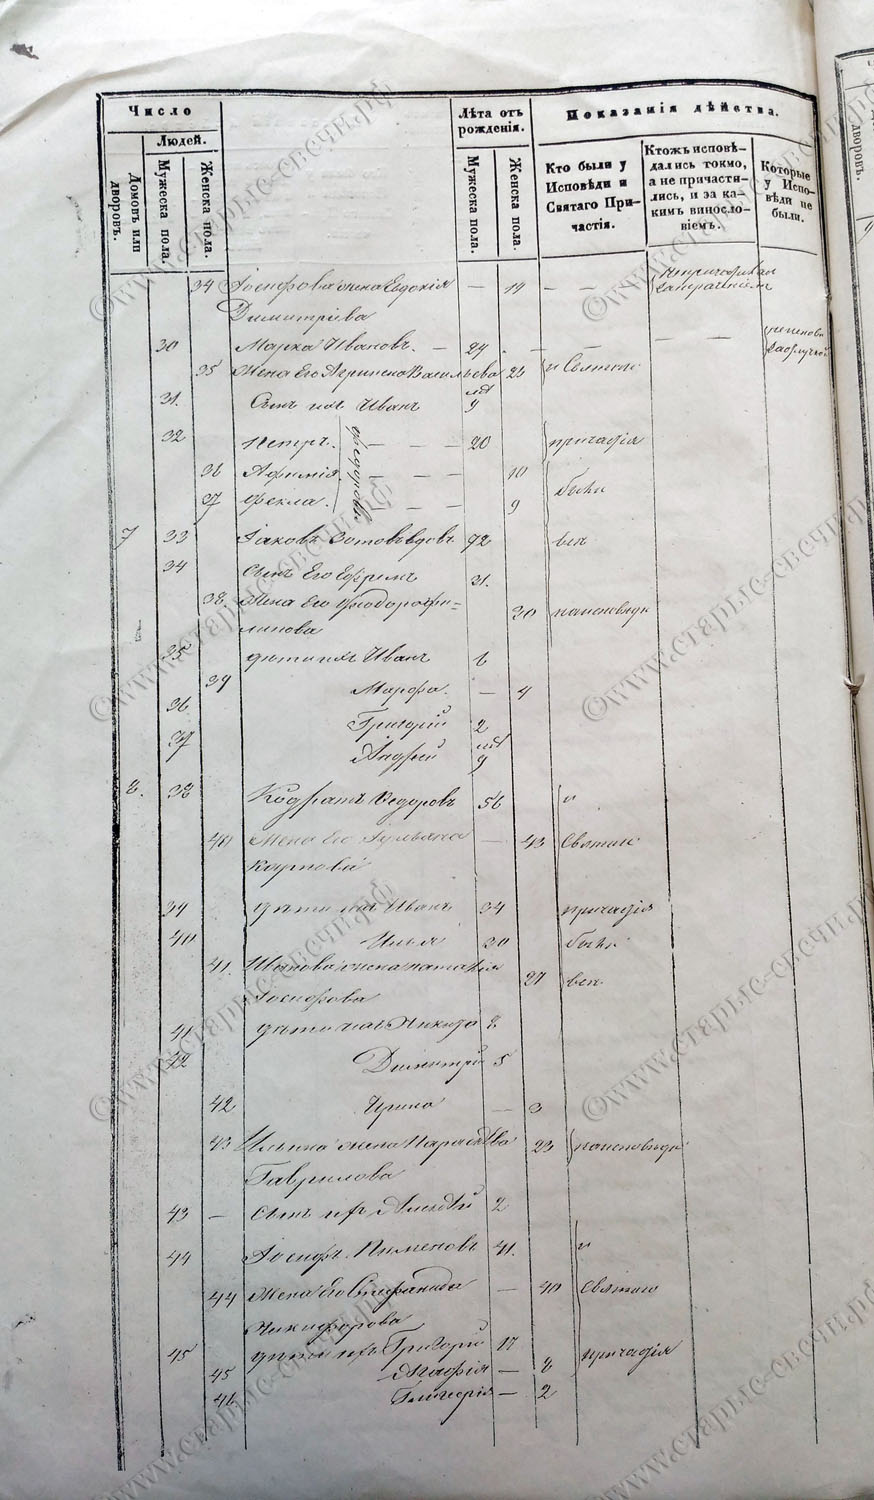 Число
Людей.
Домовъ или дворовъ.
Мужеска пола.
Женска пола.
Лѣта отъ рожденія.
Мужеска пола.
Женска пола.
Показанія дѣйства.
Кто были у Исповѣди и Святаго Причастія.
Ктожъ исповѣдались токмо, а не причастились, и за какимъ винословіемъ.
Которые у Исповѣди не были.
34 Іосифова жена Евдокія — 19 — —
Димитріева
30 Марка Ивановъ. — 24 — —
35 Жена Его Агрипена Васильева 23 и Святаго
31. Сынъ ихъ Иванъ 9
32 Петръ. — — — 20 причастія
Федоровы
36 Афимія. — — — 10 были
37 Фекла. — — 9
7 33 Іаковъ Зотовъ вдовъ 72 всп
34 Сынъ Его Ефремъ 31.
38 Жена Его Феодора Фи= 30 наисповѣди
липова
35 дѣти ихъ Иванъ 6
39 Марфа. — 4
36 Григорій 2
37 Андрей 9
8. 38 Кодратъ Федоровъ 56 и
40 Жена Его Іульяна — 43 Святаго
Карпова
39 дѣти ихъ Иванъ 34 причастія
40 Илья 30 были
41. Иванова жена Наталія 27 всп
Іосифова
41 дѣти ихъ Никита 8
42 Димитрій 5
42 Ирина — 3
43 Ильина жена Параскева 23 наисповѣди
Гаврилова
43 — Сынъ ихъ Алексѣй 2
44 Іосифъ Пименовъ 41. и
44 Жена Его Стефанида — 40 Святаго
Никифорова
45 дѣти ихъ Григорій 17 причастія
45 Агафія — 8
46 Гликерія — 2
©www.старые-свечи.рф